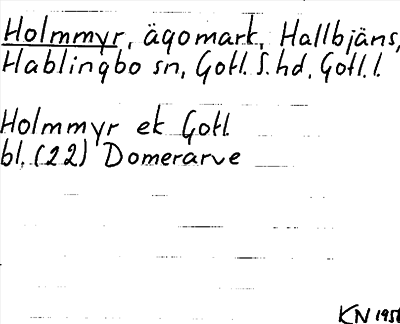 Holmmyr, ägomark, Hallbjäns,
Hablingbo sn, Gotl. S. hd, Gotl. l.
Holmmyr ek Gotl
bl. (22) Domerarve
KN 1956